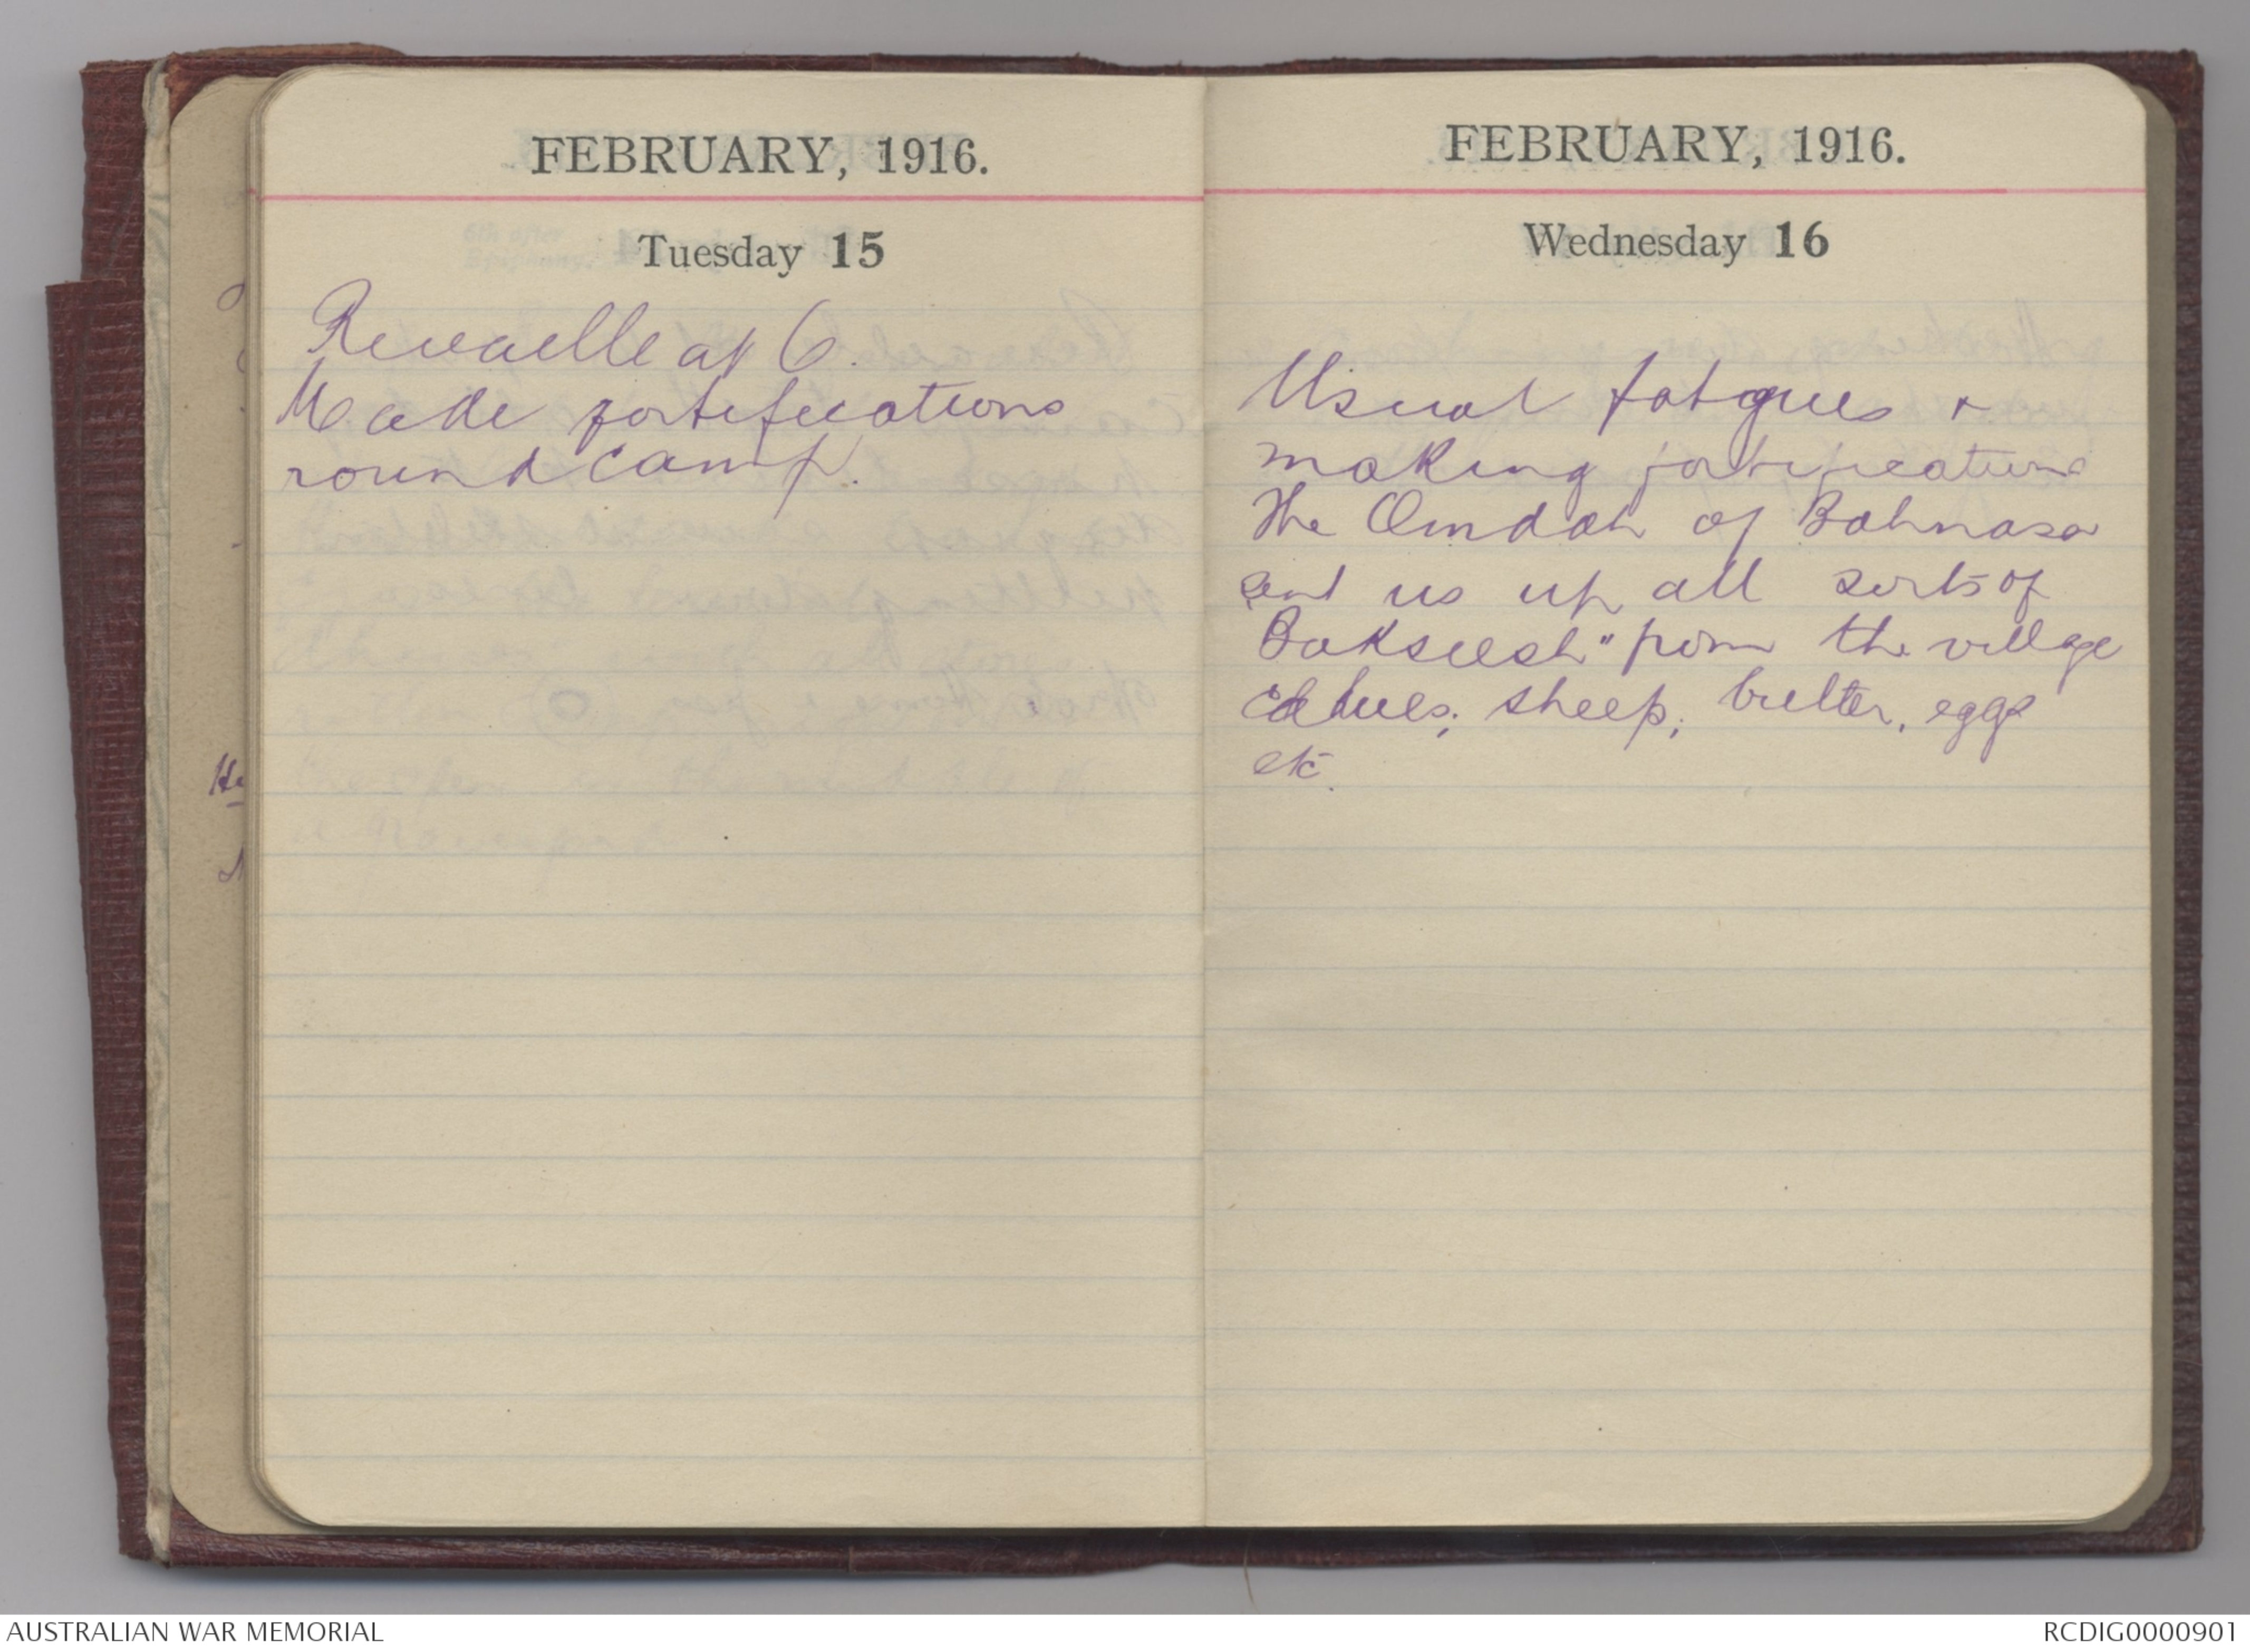 FEBRUARY, 1916.
Tuesday 15
Revaelle at 6.
Made fortifications
round camp.
FEBRUARY, 1916.
Wednesday 16
Usual fatigues +
making fortifications
The Omdah of Bahnasa
sent us up all sorts of
Bakseesh" from the village
sheep, butter, eggs
etc.
He
AUSTRALIAN WAR MEMORIAL
RCDIG0000901